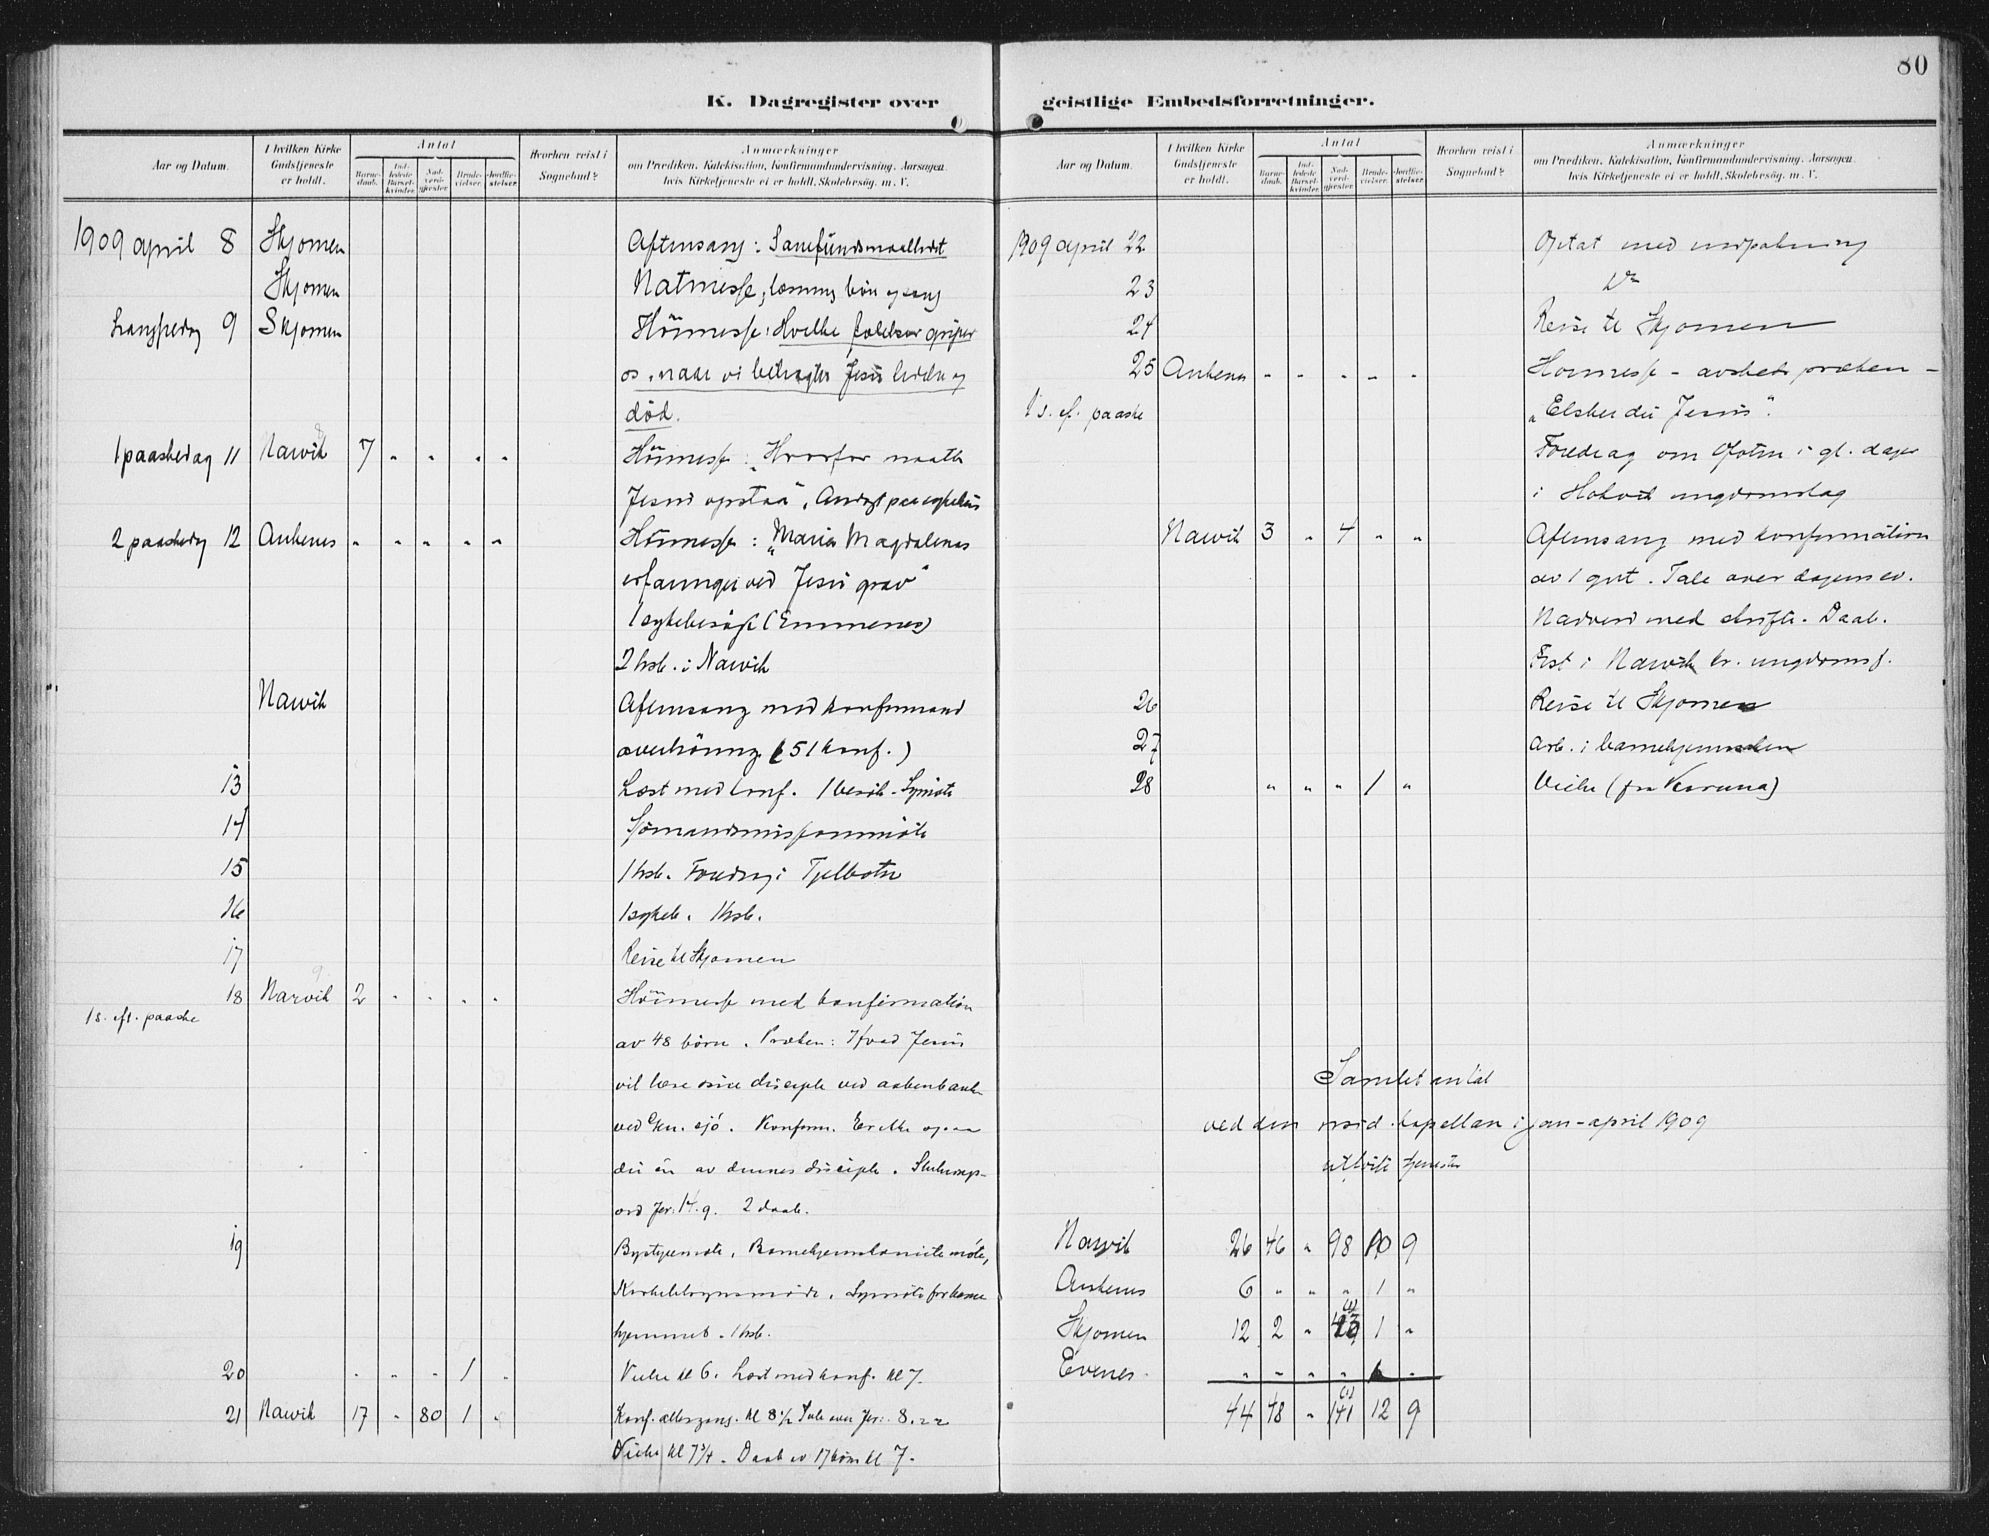 80
K. Dagregister over geistlige Embedsforretninger.
Aar og Datum.
I hvilken Kirke Gudstjeneste er holdt.
Antal
Barnedaab.
Indledede Barselkvinder.
Nadverdgjester
Brudevielser.
Jordfæstelser.
Hvorhen reist i Sognebud?
Anmærkninger
om Prædiken, Katekisation, Konfirmandundervisning, Aarsagen
hvis Kirketjeneste ei er holdt, Skolebesøg, m. V.
1909 april 8 Skjomen Aftensang: Samfundsmaaltidet
Skjomen Natmesse, læsning bön og sang
Langfredag 9 Skjomen Höimesse: Hvilke følelser griper
os, naar vi betragter Jesu lidelse og
död.
1 paaskedag 11 Narvik 7 " " " " Höimesse: "Hvorfor maatte
Jesus opstaa".
2 paaskedag 12 Ankenes " " " " " Höimesse: "Maria Magdalenas
erfaringer ved Jesu grav"
1 sykebesök (Emmenes)
2 hsb. i Narvik
Narvik Aftensang med konfirmand
overhöring (51 konf.)
13 Læst med konf. 1 besök. Symöte
14 Sjömandsmissionsmöte
15 1 hsb. Foredrag i
16 1 sykeb. 1 hsb.
17 Reise til Skjomen
18 Narvik 2 " " " " Höimesse med konfirmation
1 s. eft. paaske
av 48 börn. Præken: Hvad Jesus
vil lære sine disciple ved aabenbarelsen
ved Gen. sjö. Konform. Er ikke ogsaa
du en av dennes disciple.
ord Jer. 14.9. 2 daab.
19 Bystyremöte, Barnehjemskomitemöte,
Symöte for barne
hjemmet. 1 hsb.
20 " " " 1 " Vielse kl 6. Læst med konf. kl 7.
21 Narvik 17 " 80 1 " Konf. altergang. kl 8½ Tale over
Vielse kl 7¾. Daab av 17 börn kl 7.
Aar og Datum.
I hvilken Kirke Gudstjeneste er holdt.
Antal
Barnedaab.
Indledede Barselkvinder.
Nadverdgjester
Brudevielser.
Jordfæstelser.
Hvorhen reist i Sognebud?
Anmærkninger
om Prædiken, Katekisation, Konfirmandundervisning, Aarsagen
hvis Kirketjeneste ei er holdt, Skolebesøg, m. V.
1909 april 22 Optat med indpakning
23 Do
24 Reise til Skjomen
25 Ankenes " " " " " Höimesse - avskeds præken -
1 s. ef. paaske "Elsker du Jesus".
Foredrag om Ofoten i gl. dager
i Haakvik ungdomslag
Narvik 3 " 4 " " Aftensang med konfirmation
av 1 gut. Tale over dagens ev.
Nadverd med skrifte. Daab.
Fest i Narvik kr. ungdomsf.
26 Reise til Skjomen
27 Arb. i barnehjemssaken
28 " " " 1 " Vielse (fra Kiruna)
Samlet antal
ved den resid. kapellan i jan-april 1909
utförte tjenester
Narvik 26 46 " 98 10 9
Ankenes 6 " " " 1 "
Skjomen 12 2 " 43 1 "
Evenes " " " " "
44 48 " 141 12 9